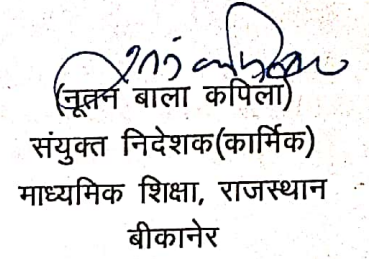 (नूतन बाला कपिला)
संयुक्त निदेशक(कार्मिक)
माध्यमिक शिक्षा, राजस्थान
बीकानेर